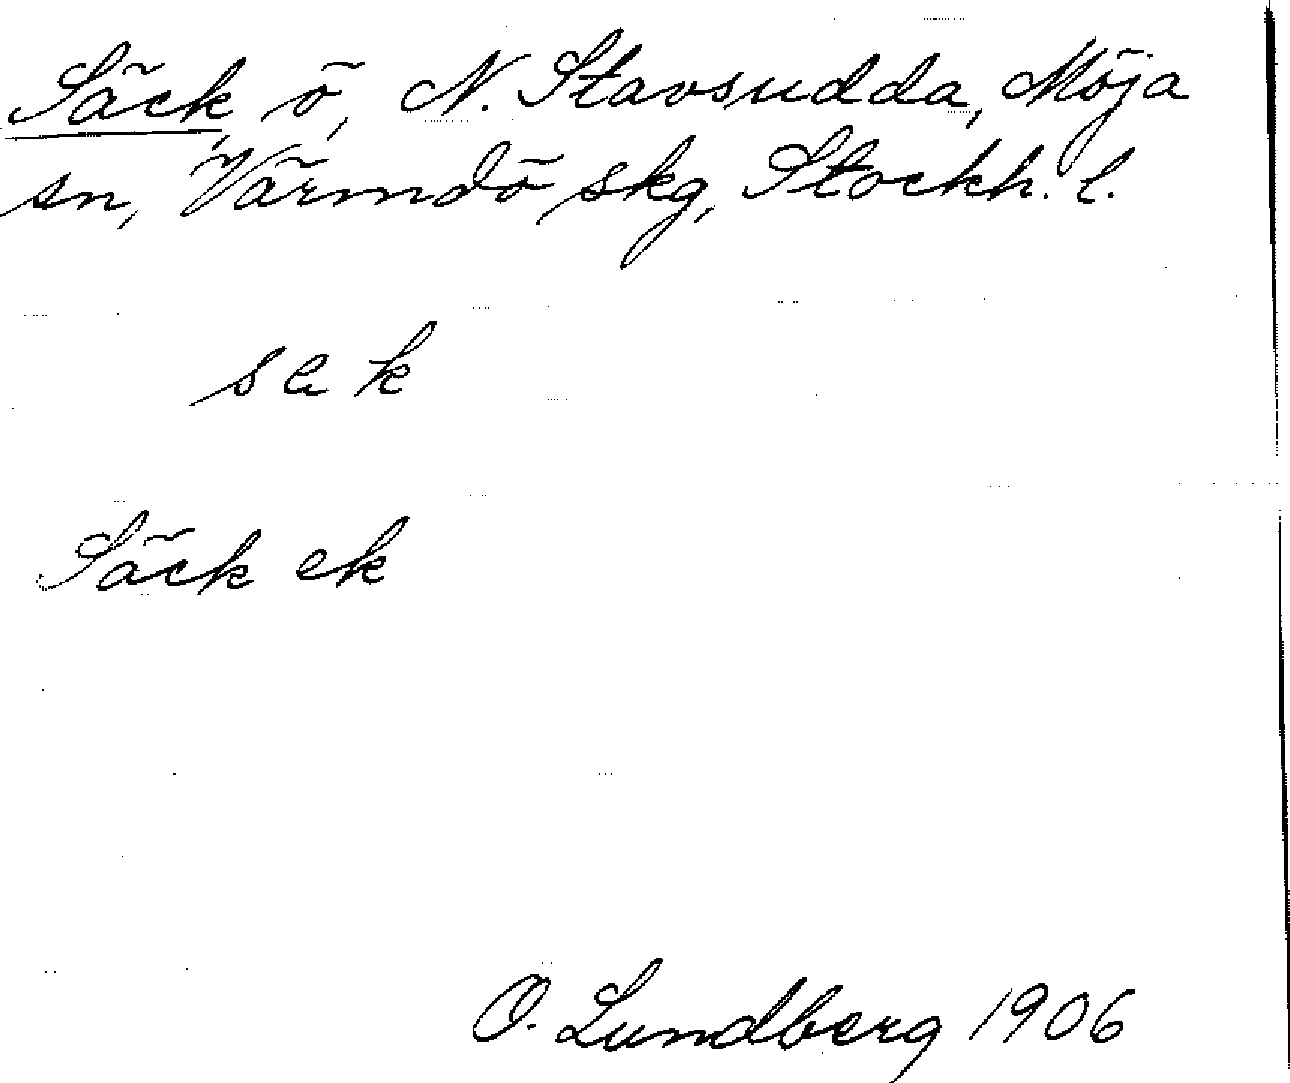 Säck, ö, N. Stavsudda, Möja
sn, Värmdö skg, Stockh. l.
Säck ek
O. Lundberg 1906